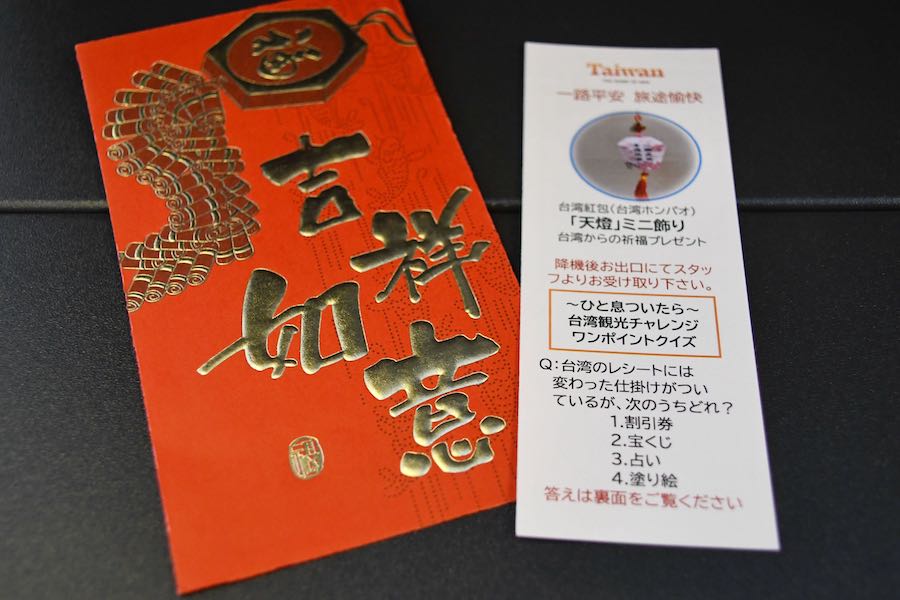 吉
祥
如
意
Taiwan
一路平安 旅途愉快
台湾紅包(台湾ホンパオ)
「天燈」ミニ飾り
台湾からの祈福プレゼント
降機後お出口にてスタッ
フよりお受け取り下さい。
～ひと息ついたら～
台湾観光チャレンジ
ワンポイントクイズ
Q:台湾のレシートには
変わった仕掛けがつい
ているが、次のうちどれ？
1.割引券
2.宝くじ
3.占い
4.塗り絵
答えは裏面をご覧ください